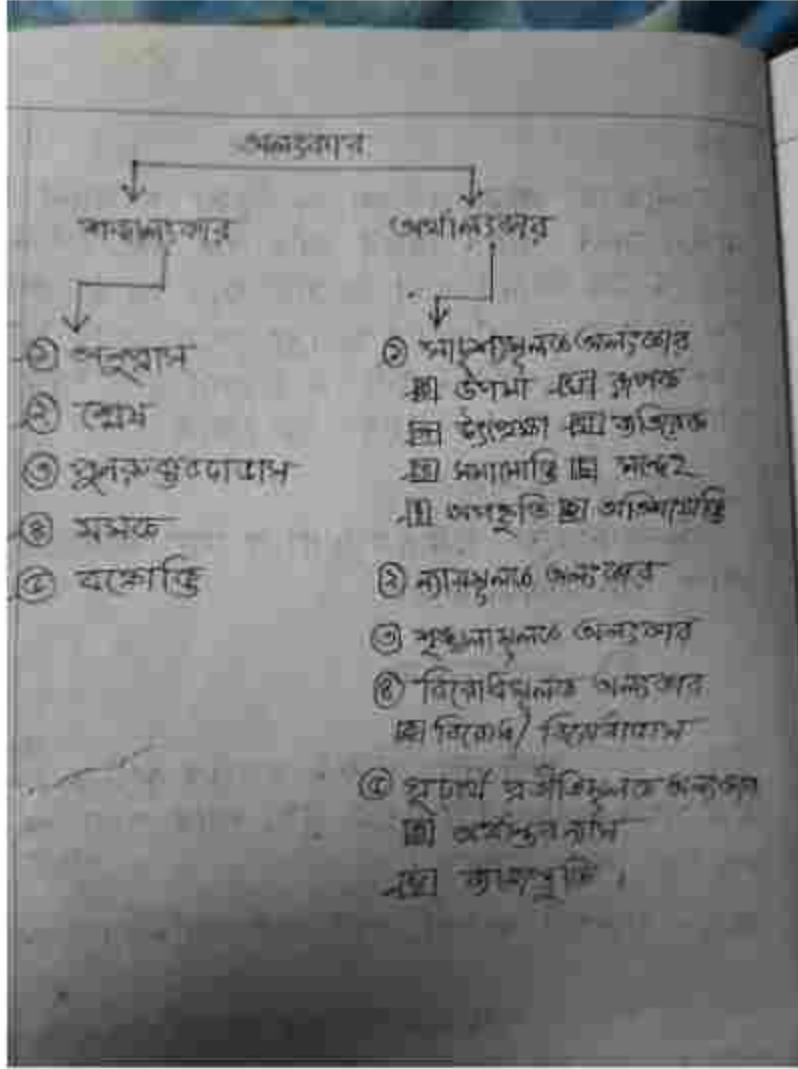 অলংকার
শব্দালংকার
অর্থালংকার
① অনুপ্রাস
② শ্লেষ
③ পুনরুক্তবদাভাস
④ যমক
⑤ বক্রোক্তি
① সাদৃশ্যমূলক অলংকার
ক উপমা খ রূপক
গ উৎপ্রেক্ষা ঘ ব্যতিরেক
ঙ সমাসোক্তি চ সন্দেহ
ছ অপহ্নুতি জ অতিশয়োক্তি
② ন্যায়মূলক অলংকার
③ শৃঙ্খলামূলক অলংকার
④ বিরোধমূলক অলংকার
ক বিরোধ / বিরোধাভাস
⑤ গূঢ়ার্থ প্রতীতিমূলক অলংকার
ক অর্থান্তরন্যাস
খ ব্যাজস্তুতি।